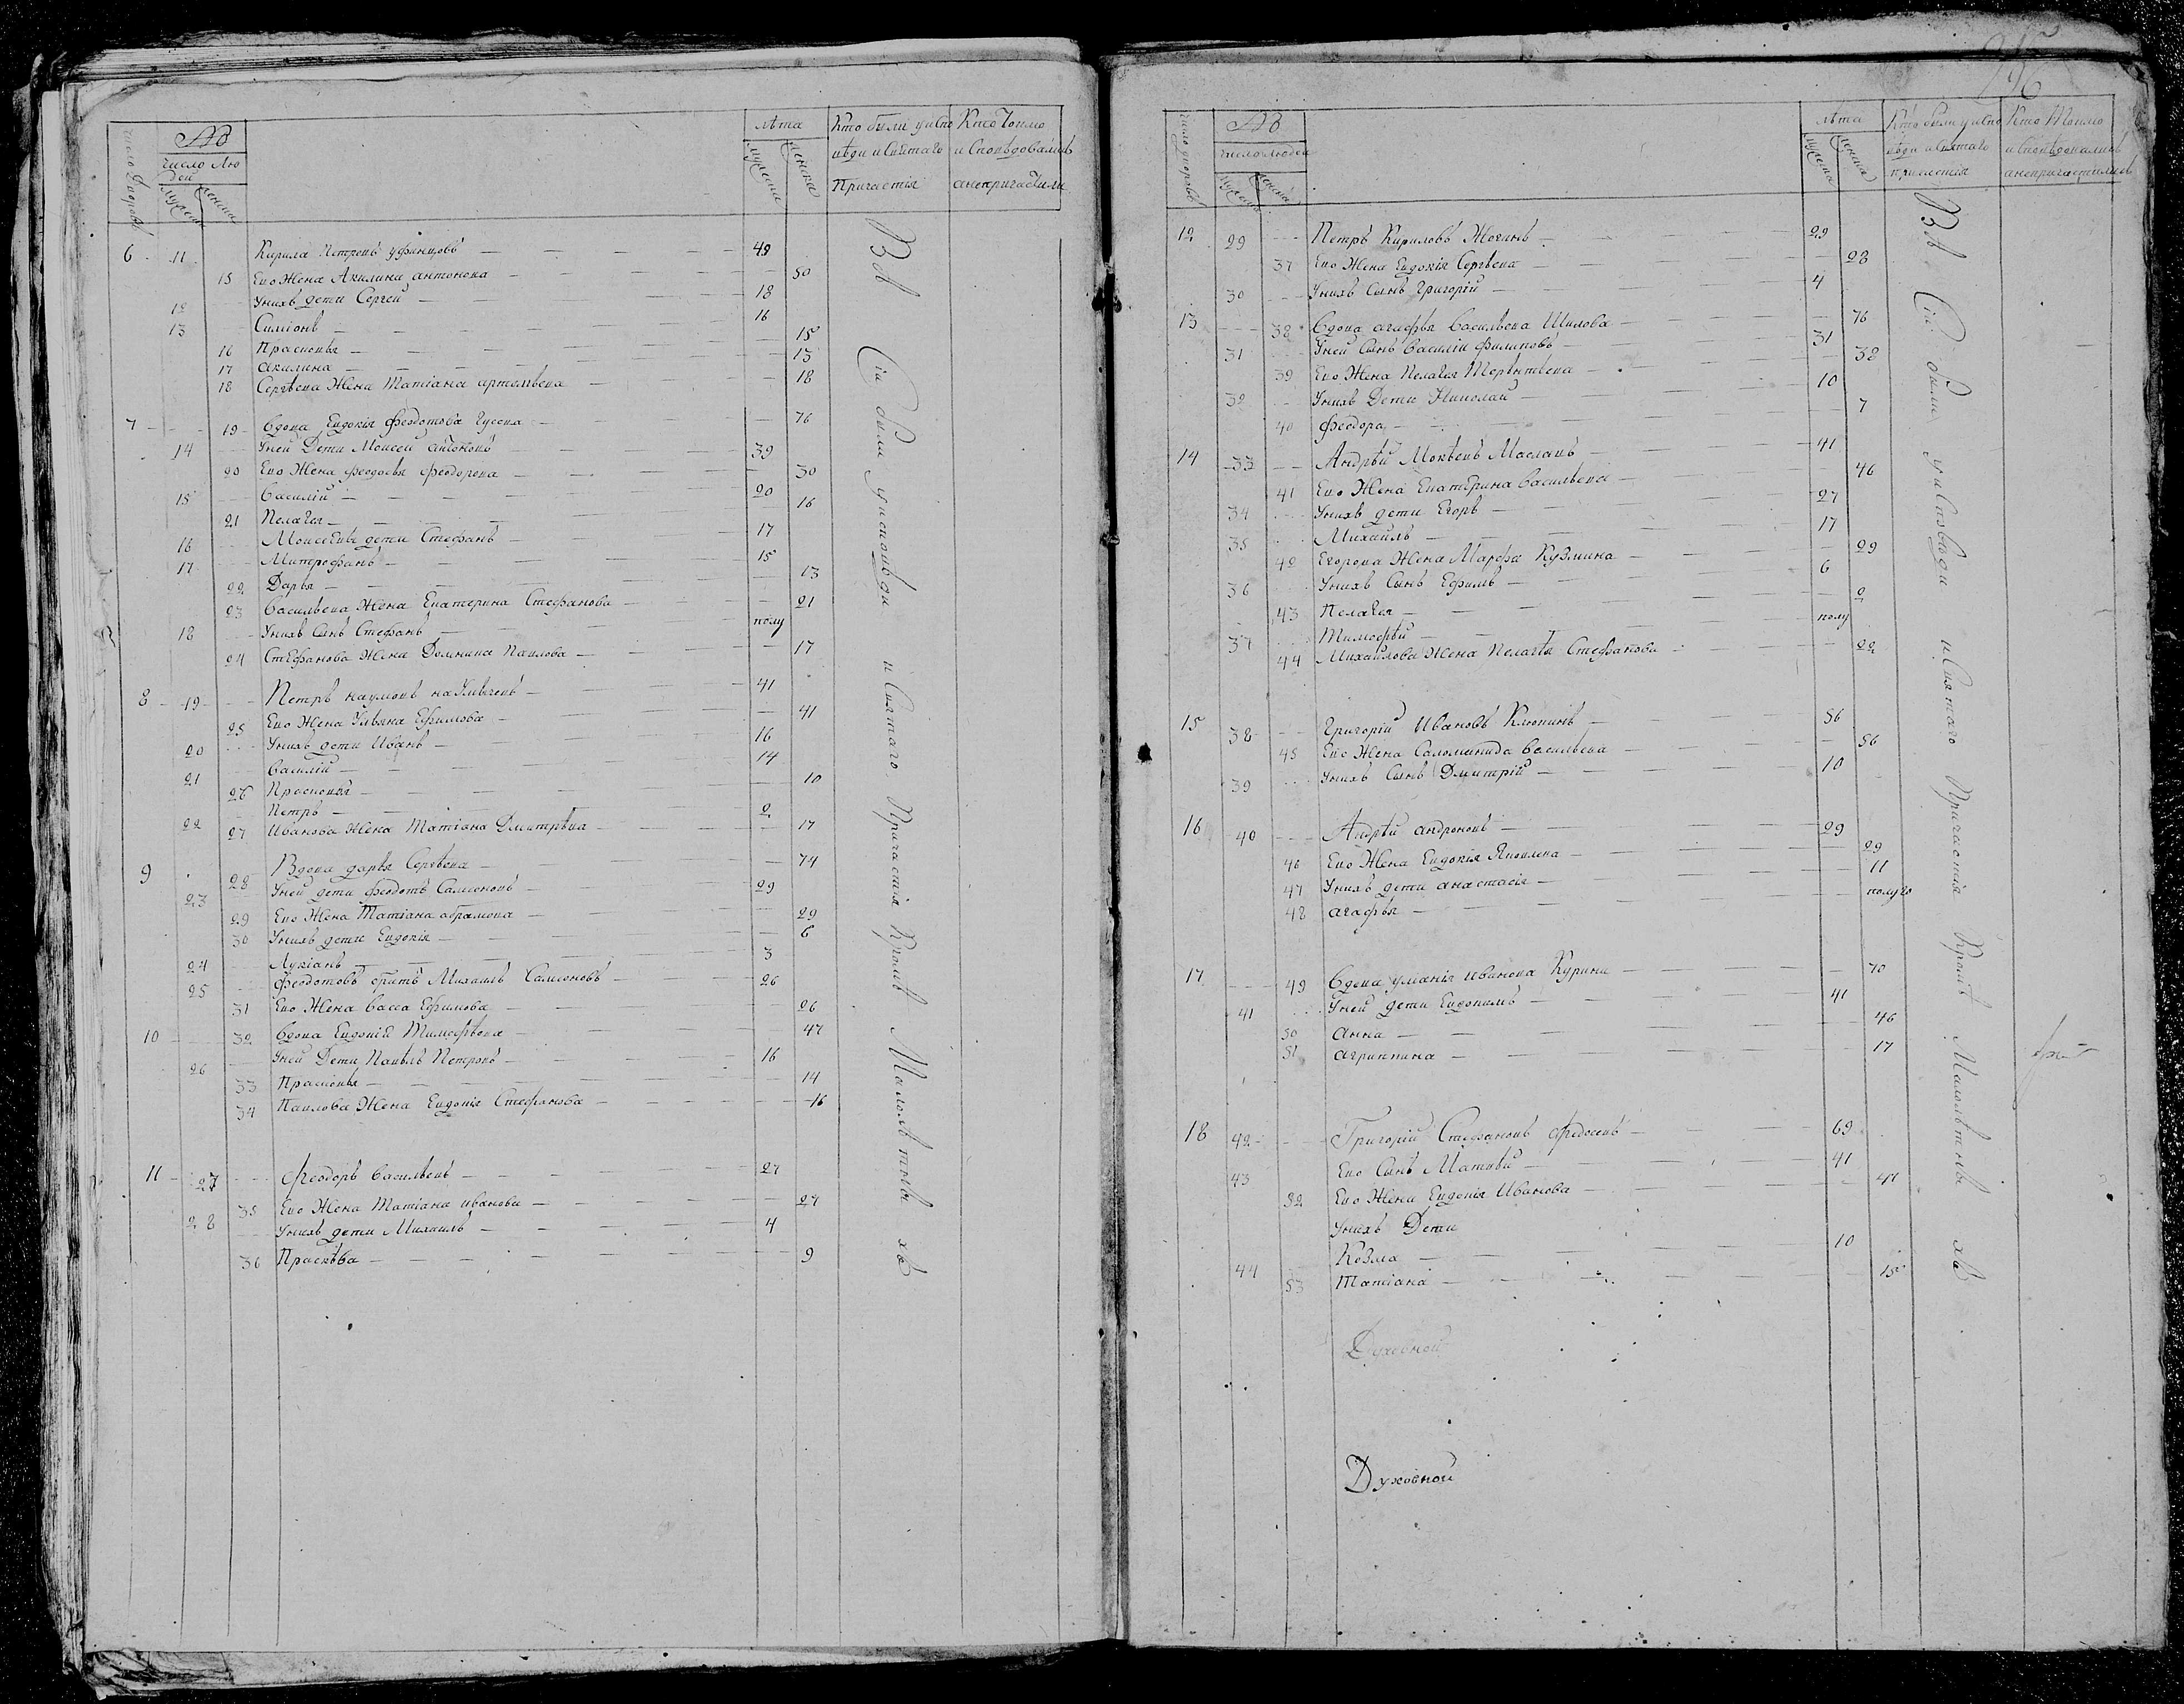 число дворовъ
№
число лю
дей
мужеск
женска
лѣта
мужеска
женска
Кто были у испо
вѣди и Святаго
Причастія
Кто Токмо
исповѣдовались
а непричастились
6 11 Кирила Петровъ 49
15 Ево Жена Акилина антонова 50
12 Унихъ дети Сергей 18
13 Симіонъ 16
16 Прасковья 15
17 акилина 13
18 Сергѣева Жена Татіана артемьева 18
7 19 вдова Евдокія Феодотова Гусева 76
14 Уней Дети Моисей антоновъ 39
20 Ево Жена феодосья феодорова 30
15 василій 20
21 Пелагея 16
16 Моисеевы дети Стефанъ 17
17 Митрофанъ 15
22 Дарья 13
23 васильева Жена Екатерина Стефанова 21
18 Унихъ Сынъ Стефанъ полу
24 Стефанова Жена Домнина Павлова 17
8 19 Петръ наумовъ 41
25 Ево Жена Ульяна Ефимова 41
20 Унихъ дети Иванъ 16
21 василій 14
26 Прасковья 10
22 Петръ 2
27 Иванова Жена Татіана Дмитрѣва 17
9 28 Вдова дарья Сергѣева 74
23 Уней дети феодотъ Самсоновъ 29
29 Ево Жена Татіана абрамова 29
30 Унихъ дети Евдокія 6
24 Лукіанъ 3
25 Феодотовъ братъ Михаилъ Самсоновъ 26
31 Ево Жена васса Ефимова 26
10 32 вдова Евдокія Тимофѣева 47
26 Уней Дети Павелъ Петровъ 16
33 Прасковья 14
34 Павлова Жена Евдокія Стефанова 16
11 27 Феодоръ васильевъ 27
35 Ево Жена Татіана иванова 27
28 Унихъ дети Михаилъ 4
36 Праскѣва 9
Всѣ Сіи были уисповѣди и Святаго Причастія Кромѣ Малолѣтныхъ
число дворовъ
№
число людей
мужеск
женска
лѣта
мужеска
женска
Кто были у испо
вѣди и Святаго
причастія
Кто Токмо
исповѣдовались
а непричастились
12 29 Петръ Кириловъ 29
37 Ево Жена Евдокія Сергѣева 28
30 Унихъ Сынъ Григорій 4
13 38 вдова агафья васильева Шилова 76
31 Уней Сынъ василій филиповъ 31
39 Ево Жена Пелагея Терентьева 38
32 Унихъ Дети Николай 10
40 феодора 7
14 33 Андрѣй Мокѣевъ Маславъ 41
41 Ево Жена Екатерина васильева 46
34 Унихъ дети Егоръ 27
35 Михаилъ 17
42 Егорова Жена Марфа Кузмина 29
36 Унихъ Сынъ Ефимъ 6
43 Пелагея 2
37 Тимофѣй полу
44 Михайлова Жена Пелагѣя Стефанова 22
15 38 Григорій Ивановъ Клюкинъ 56
45 Ево Жена Саломанида васильева 56
39 Унихъ Сынъ Дмитрій 10
16 40 Андрѣй андроновъ 29
46 Ево Жена Евдокія Яковлева 29
47 Унихъ дети анастасія 11
48 агафья полуго
17 49 вдова уланія иванова Курина 70
41 Уней дети Евдокимъ 41
50 анна 46
51 агрипина 17
18 42 Григорій Стефановъ Федосеевъ 69
43 Ево Сынъ Матвѣй 41
52 Ево Жена Евдокія Иванова 41
Унихъ Дети
44 Козма 10
53 Татіана 15
Духовной
Духовной
Всѣ Сіи были уисповѣди и Святаго Причастія Кромѣ Малолѣтныхъ